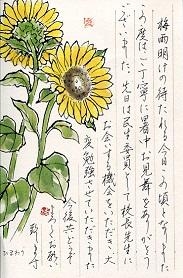 梅雨明けの待たれる今日この頃となりました
この度はご丁寧に暑中お見舞をありがとう
ございました。先日は民生委員として校長先生に
お会いする機会をいただき、大
変勉強させていただきました
今後共どうぞ
よろしくお願い
致します
ひまわり